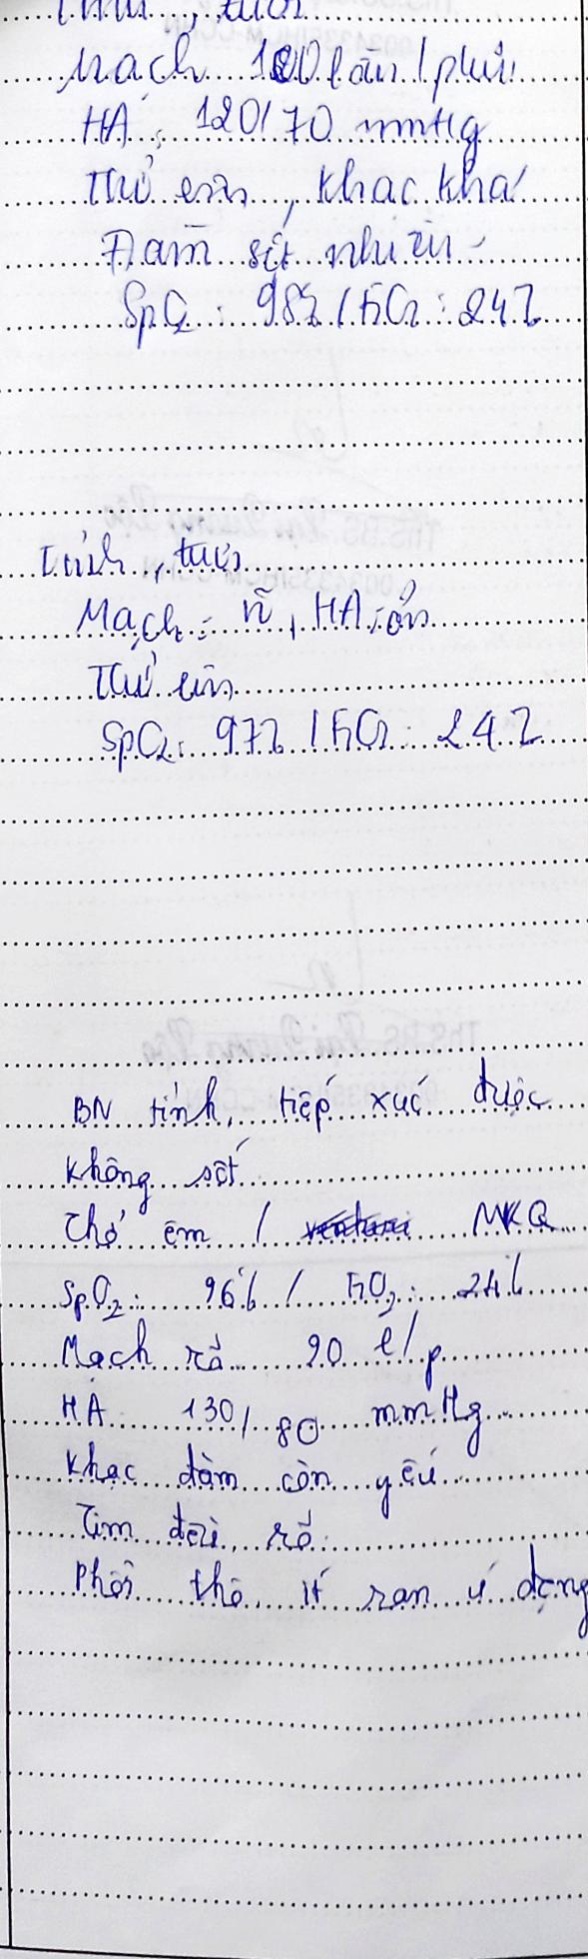 Tỉnh, tươi
Mạch 100 lần/phút
HA: 120/70 mmHg
Thở êm, khạc khá
Đàm sệt nhiều
SpO2: 98% / FiO2: 24%
Tỉnh, tươi
Mạch: rõ, HA: ổn
Thở êm
SpO2: 97% / FiO2: 24%
BN tỉnh, tiếp xúc được
Không sốt
Thở êm / MKQ
SpO2: 96% / FiO2: 24%
Mạch rõ 90 l/p
HA 130/80 mmHg
Khạc đàm còn yếu
Tim đều, rõ
Phổi thô ít ran ứ đọng